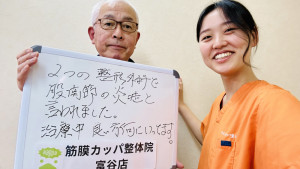 2つの整形外科で
股関節の炎症と
言われました。
治療中 良い方向にいってます!
筋膜カッパ整体院
富谷店